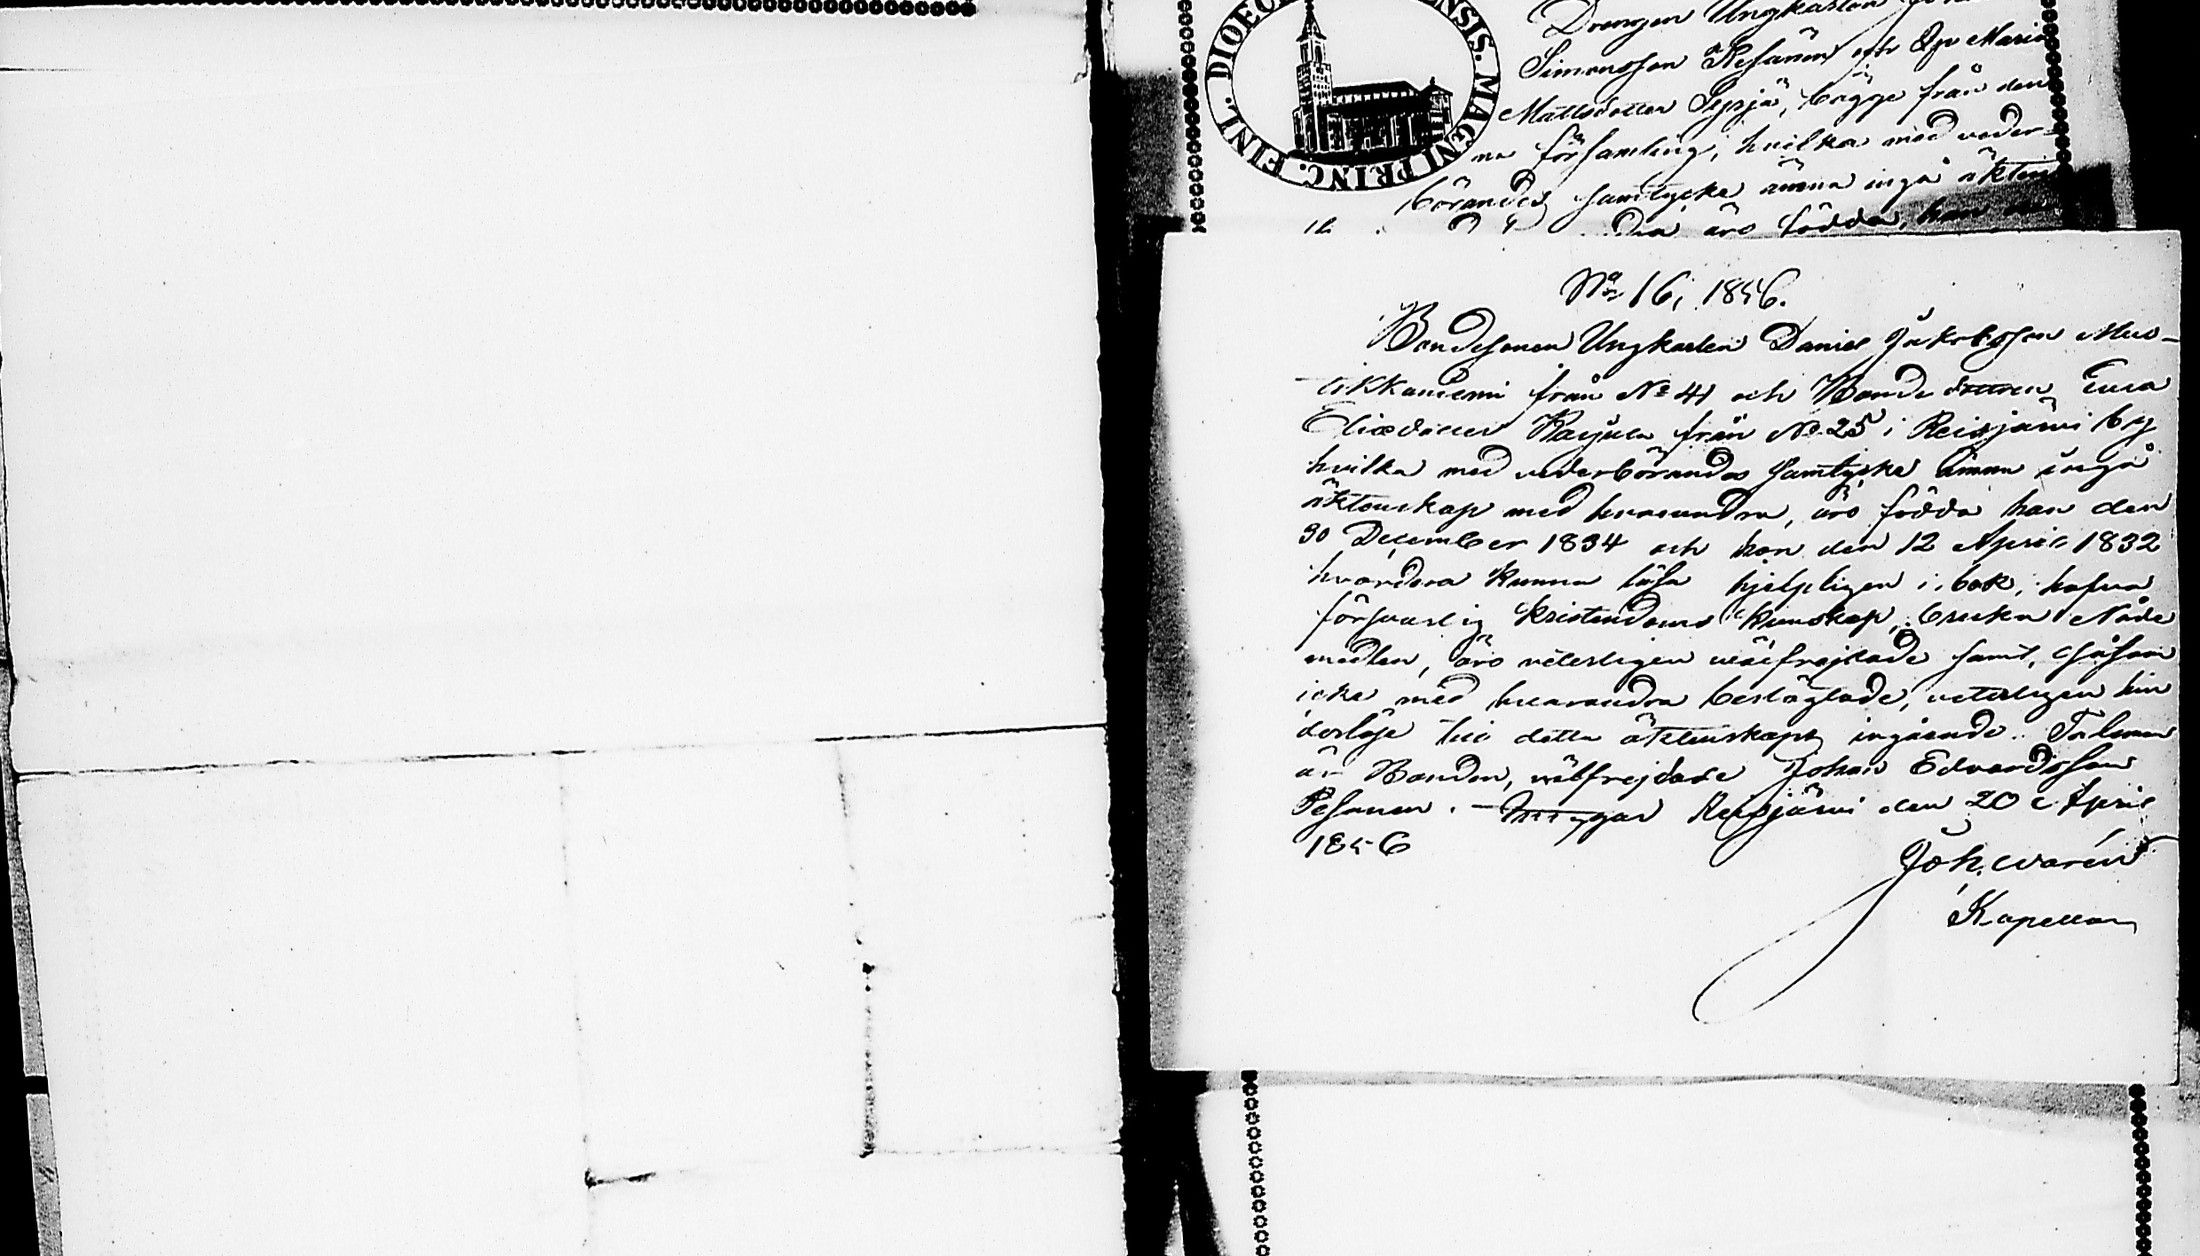 Drengen Ungkarlen
Simonsson Kesänen och Pgn Maria
Mattsdotter Syrjä, bägge från den
na församling, hvilka med veder-
börandes samtycke ämna ingå äkten
äro födda, han
FINL. DIOEC ENSIS. MAGNI PRINC.
No 16, 1856.
Bondesonen Ungkarlen Daniel Jakobsson Mus-
tikkaniemi från No 41 och Bondedottren Eva
Eliædotter Karjula från No 25 i Reisjärvi by
hvilka med vederbörandes samtycke ämna ingå
äktenskap med hvarandra, äro födda han den
30 December 1834 och hon den 12 April 1832
hvardera kunna läsa hjelpligen i bok, hafva
försvarlig kristendoms kunskap, bruka Nåde
medlen, äro veterligen wälfrejdade samt, såsom
icke med hvarandra beslägtade, veterligen hin
derlöse till detta äktenskaps ingående. Talman
är Bonden, wälfrejdade Johan Edvardsson
Pesonen. Reisjärvi den 20 April
1856
Joh. Warén
Kapellan